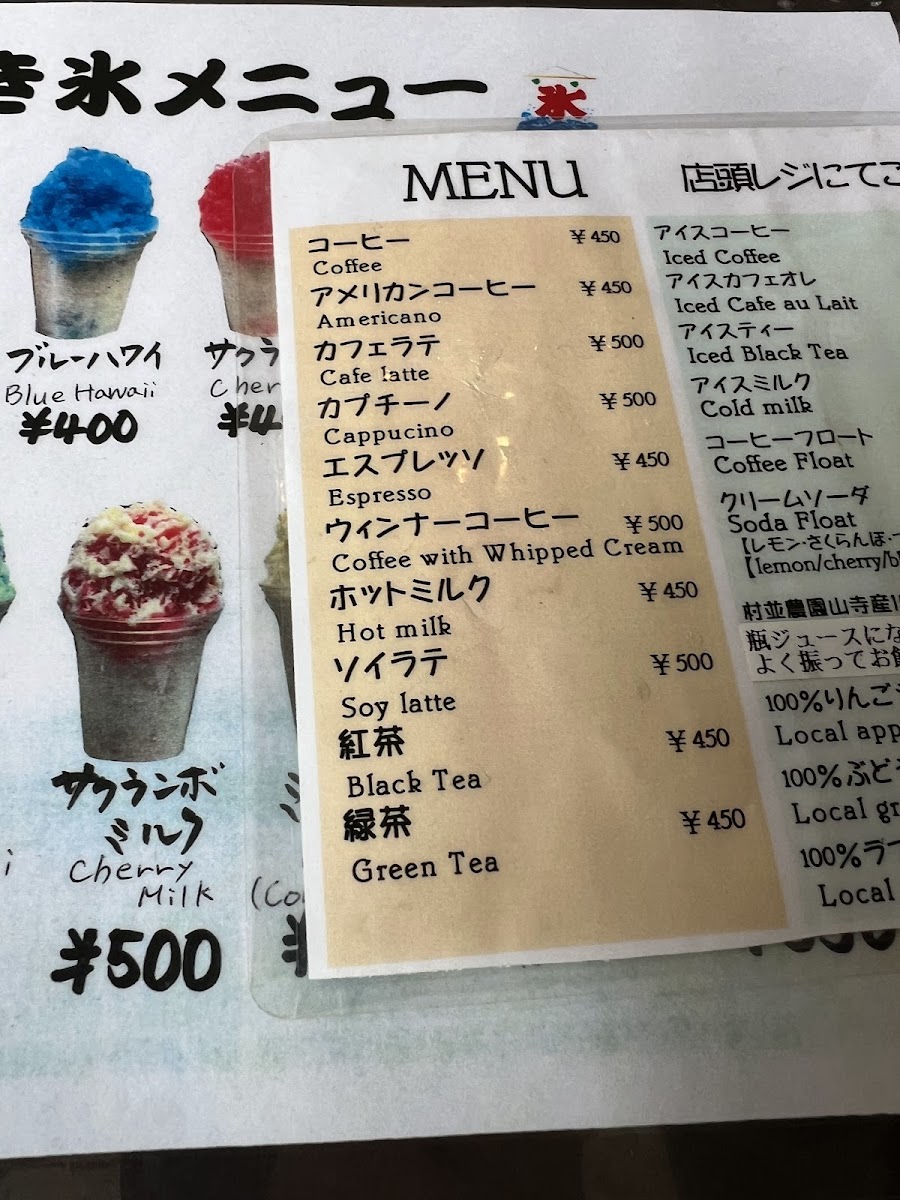 き氷メニュー
氷
ブルーハワイ
Blue Hawaii
¥400
サクラ
Cher
¥4
サクランボ
ミルク
Cherry
Milk
¥500
MENU
コーヒー ¥450
Coffee
アメリカンコーヒー ¥450
Americano
カフェラテ ¥500
Cafe latte
カプチーノ ¥500
Cappucino
エスプレッソ ¥450
Espresso
ウィンナーコーヒー ¥500
Coffee with Whipped Cream
ホットミルク ¥450
Hot milk
ソイラテ ¥500
Soy latte
紅茶 ¥450
Black Tea
緑茶 ¥450
Green Tea
店頭レジにてご
アイスコーヒー
Iced Coffee
アイスカフェオレ
Iced Cafe au Lait
アイスティー
Iced Black Tea
アイスミルク
Cold milk
コーヒーフロート
Coffee Float
クリームソーダ
Soda Float
【レモン・さくらんぼ・
【lemon/cherry/bl
村並農園山寺産
瓶ジュースにな
よく振ってお飲
100%りんご
Local app
100%ぶど
Local gr
100%ラ
Local